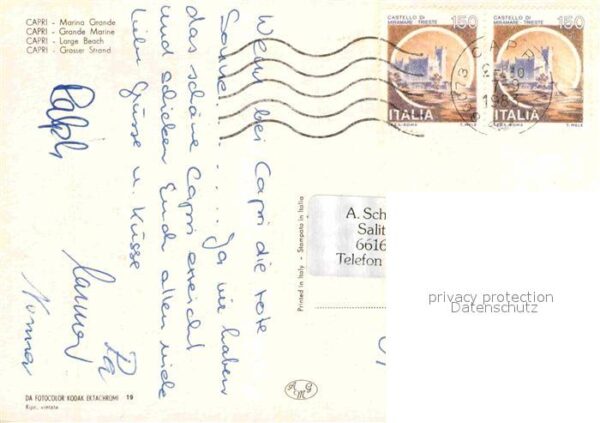 CAPRI - Marina Grande
CAPRI - Grande Marine
CAPRI - Large Beach
CAPRI - Grosser Strand
CASTELLO DI
MIRAMARE TRIESTE
150
ITALIA
I.P.Z.S. ROMA
T. MELE
CASTELLO DI
MIRAMARE TRIESTE
150
ITALIA
I.P.Z.S. ROMA
T. MELE
CAPRI
Wenn bei Capri die rote
Sonne..... Ja wir haben
das schöne Capri erreicht
und schicken Euch allen viele
liebe Grüsse u. Küsse
Ralph
Printed in Italy - Stampato in Italia
A. Sch
Salit
6616
Telefon
privacy protection
Datenschutz
DA FOTOCOLOR KODAK EKTACHROME 19
Ripr. vietata